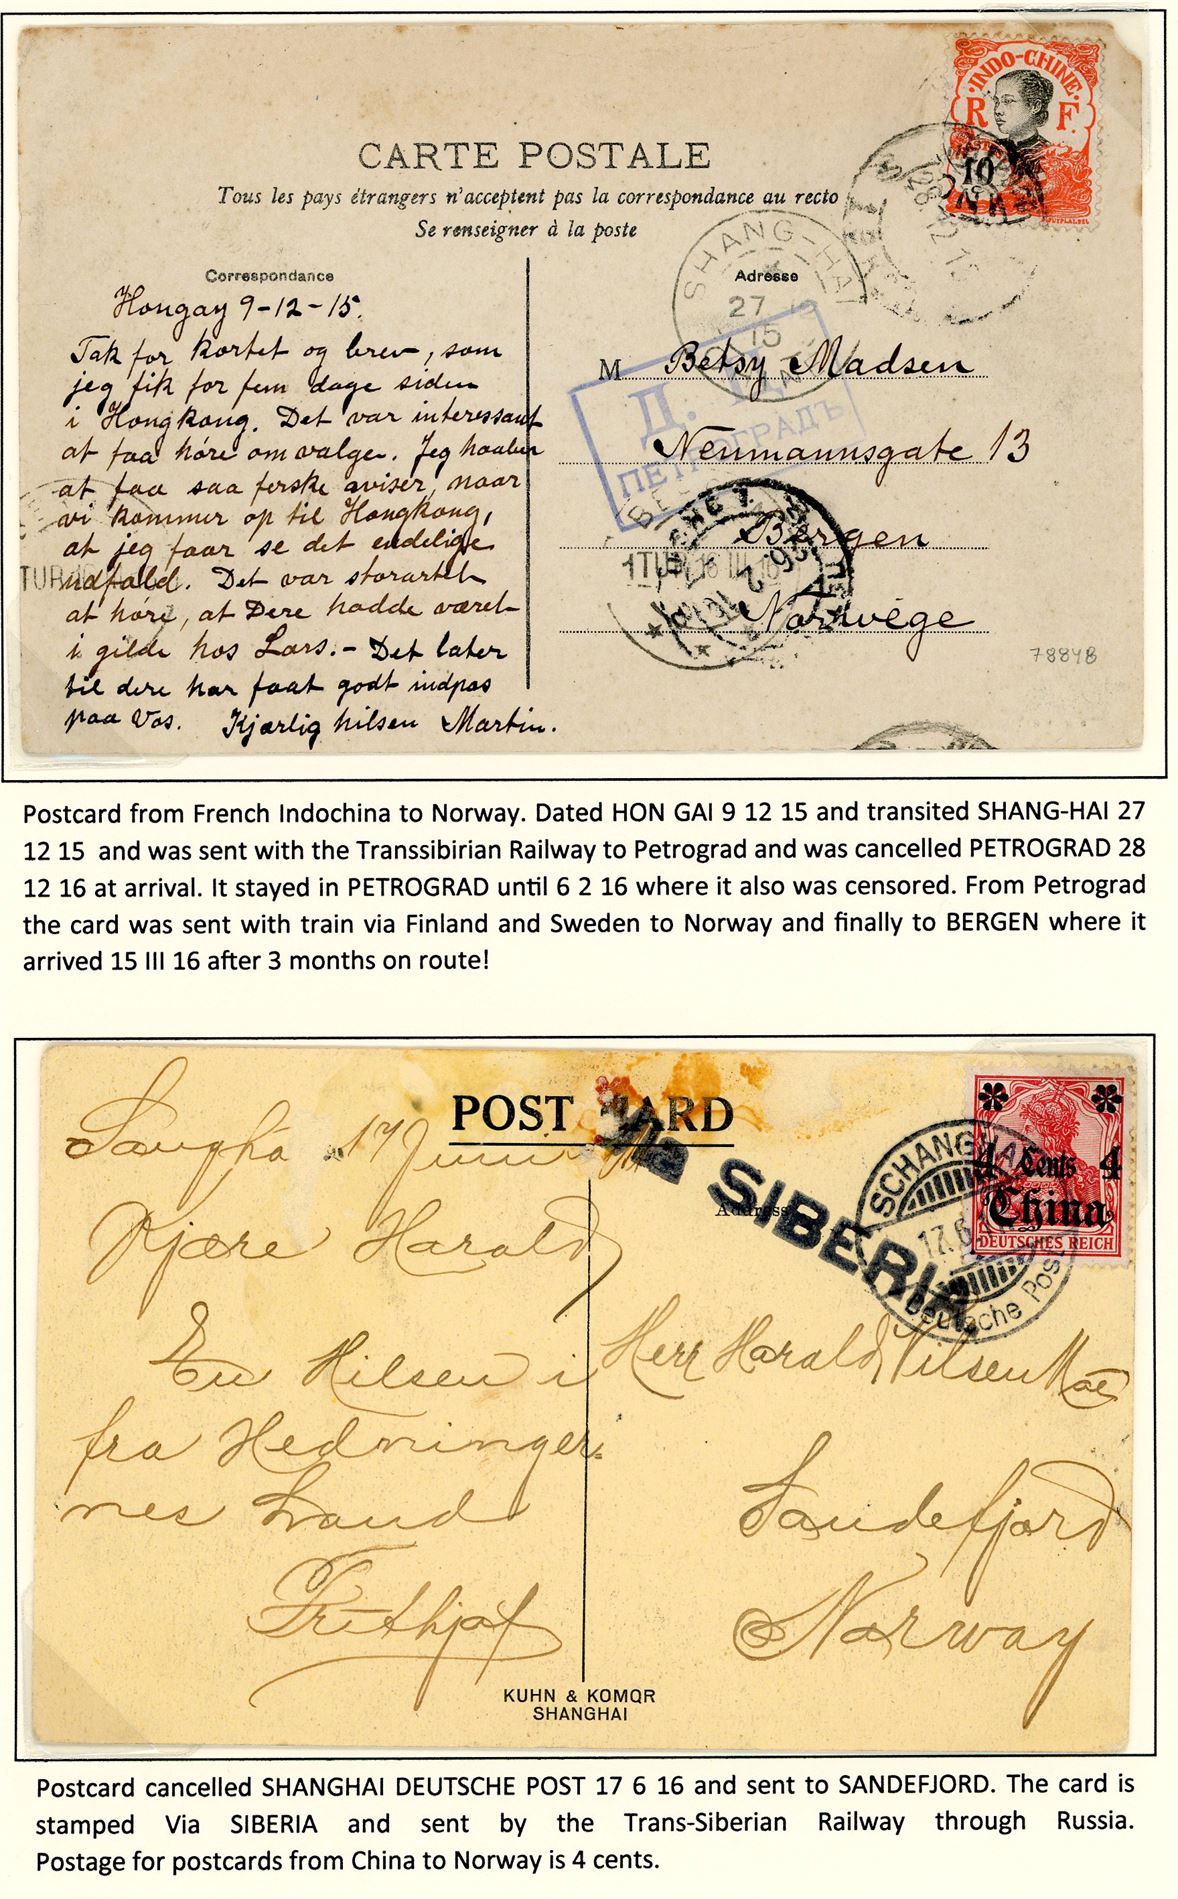 INDO-CHINE
R F
10
CARTE POSTALE
Tous les pays étrangers n'acceptent pas la correspondance au recto
Se renseigner à la poste
Correspondance
Hongay 9-12-15.
Tak for kortet og brev, som
jeg fik for fem dage siden
i Hongkong. Det var interessant
at faa høre om valge. Jeg haaber
at faa saa ferske aviser, naar
vi kommer op til Hongkong,
at jeg faar se det endelige
udfald. Det var storartet
at høre, at Dere hadde været
i gilde hos Lars. - Det later
til dere har faat godt indpas
paa Vos. Kjærlig hilsen Martin.
SHANG-HAI
27
15
CHINE
Adresse
Д.
ПЕТРОГРАДЪ
M Betsy Madsen
Neumannsgate 13
Bergen
Norwége
1TUR
16 III 16
7884B
Postcard from French Indochina to Norway. Dated HON GAI 9 12 15 and transited SHANG-HAI 27
12 15 and was sent with the Transsibirian Railway to Petrograd and was cancelled PETROGRAD 28
12 16 at arrival. It stayed in PETROGRAD until 6 2 16 where it also was censored. From Petrograd
the card was sent with train via Finland and Sweden to Norway and finally to BERGEN where it
arrived 15 III 16 after 3 months on route!
POST CARD
Via SIBERIA
Address
4 Cents 4
China
DEUTSCHES REICH
SCHANGHAI
17.6
Deutsche Post
Sangha 17 Juni
Kjære Harald
En Hilsen i
fra Hedninger
nes Land
Frithjof
Herr Harald Nilsen Moe
Sandefjord
Norway
KUHN & KOMOR
SHANGHAI
Postcard cancelled SHANGHAI DEUTSCHE POST 17 6 16 and sent to SANDEFJORD. The card is
stamped Via SIBERIA and sent by the Trans-Siberian Railway through Russia.
Postage for postcards from China to Norway is 4 cents.